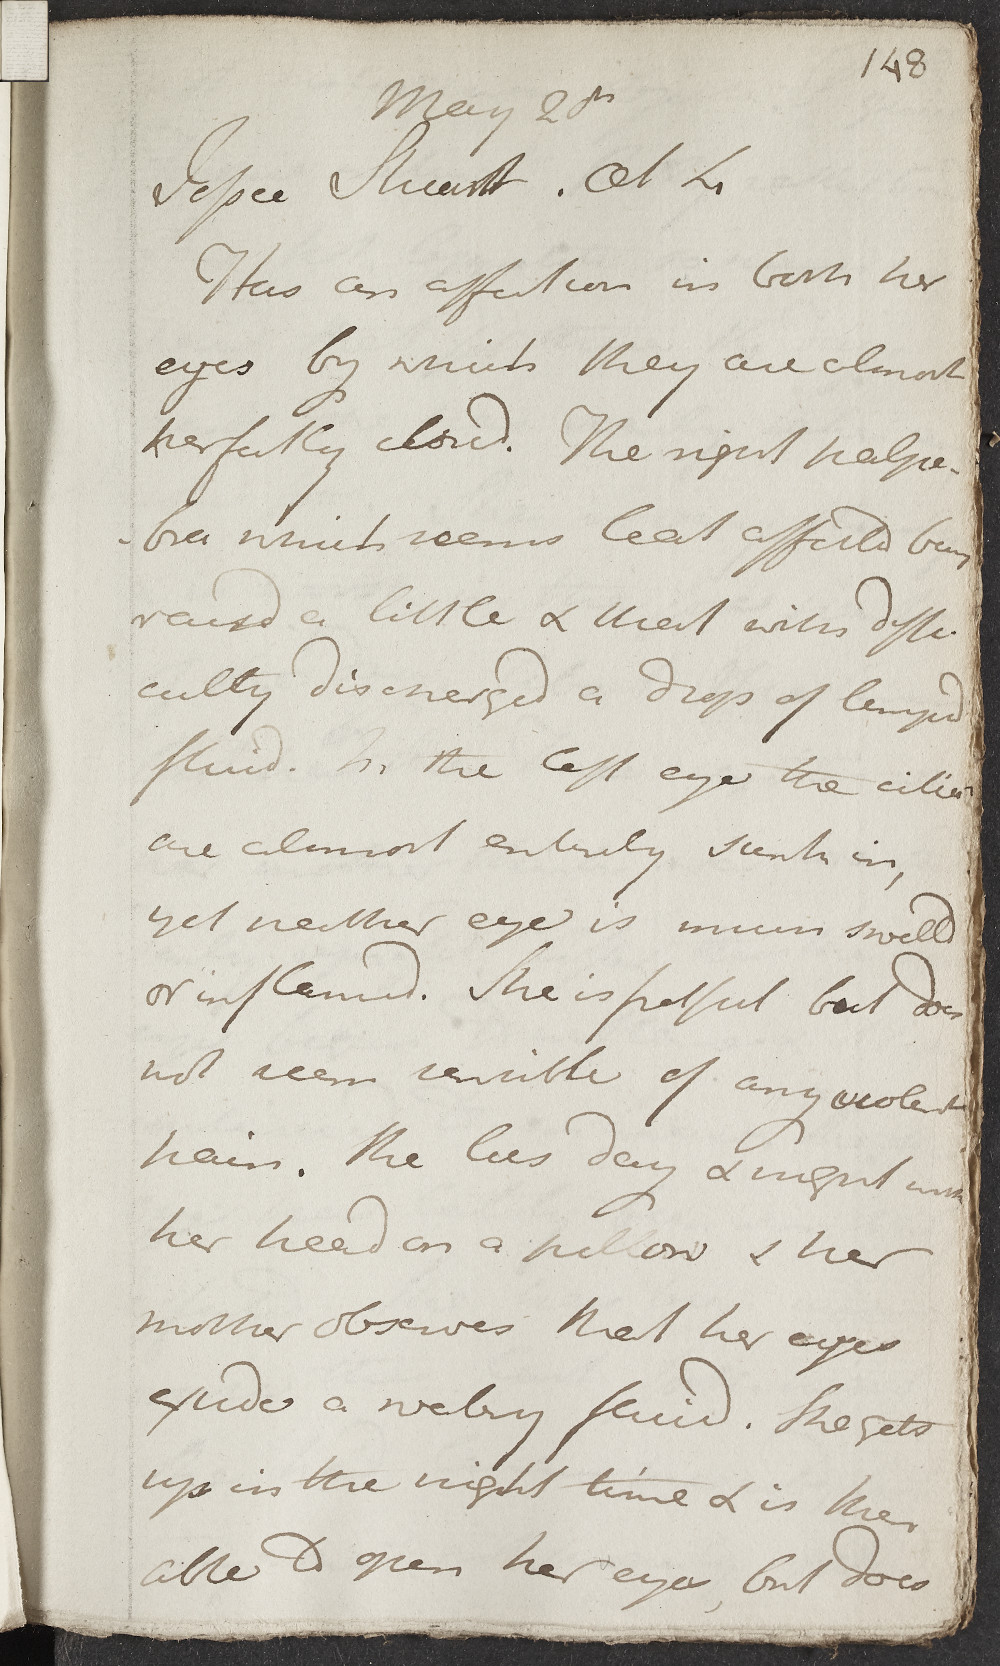 148
May 28th
Jessee Stuart. Æt 4
Has an affection in both her
eyes by which they are almost
perfectly closed. The right palpe-
-bra which seems least affected being
raised a little & that with diffi-
culty discharged a drop of limpid
fluid. In the left eye the cilia
are almost entirely sunk in,
yet neither eye is much swelld
or inflamed. She is fretful but does
not seem sensible of any violent
pain. She lies day & night with
her head on a pillow & her
mother observes that her eyes
exude a watery fluid. She gets
up in the night time & is then
able to open her eyes, but does